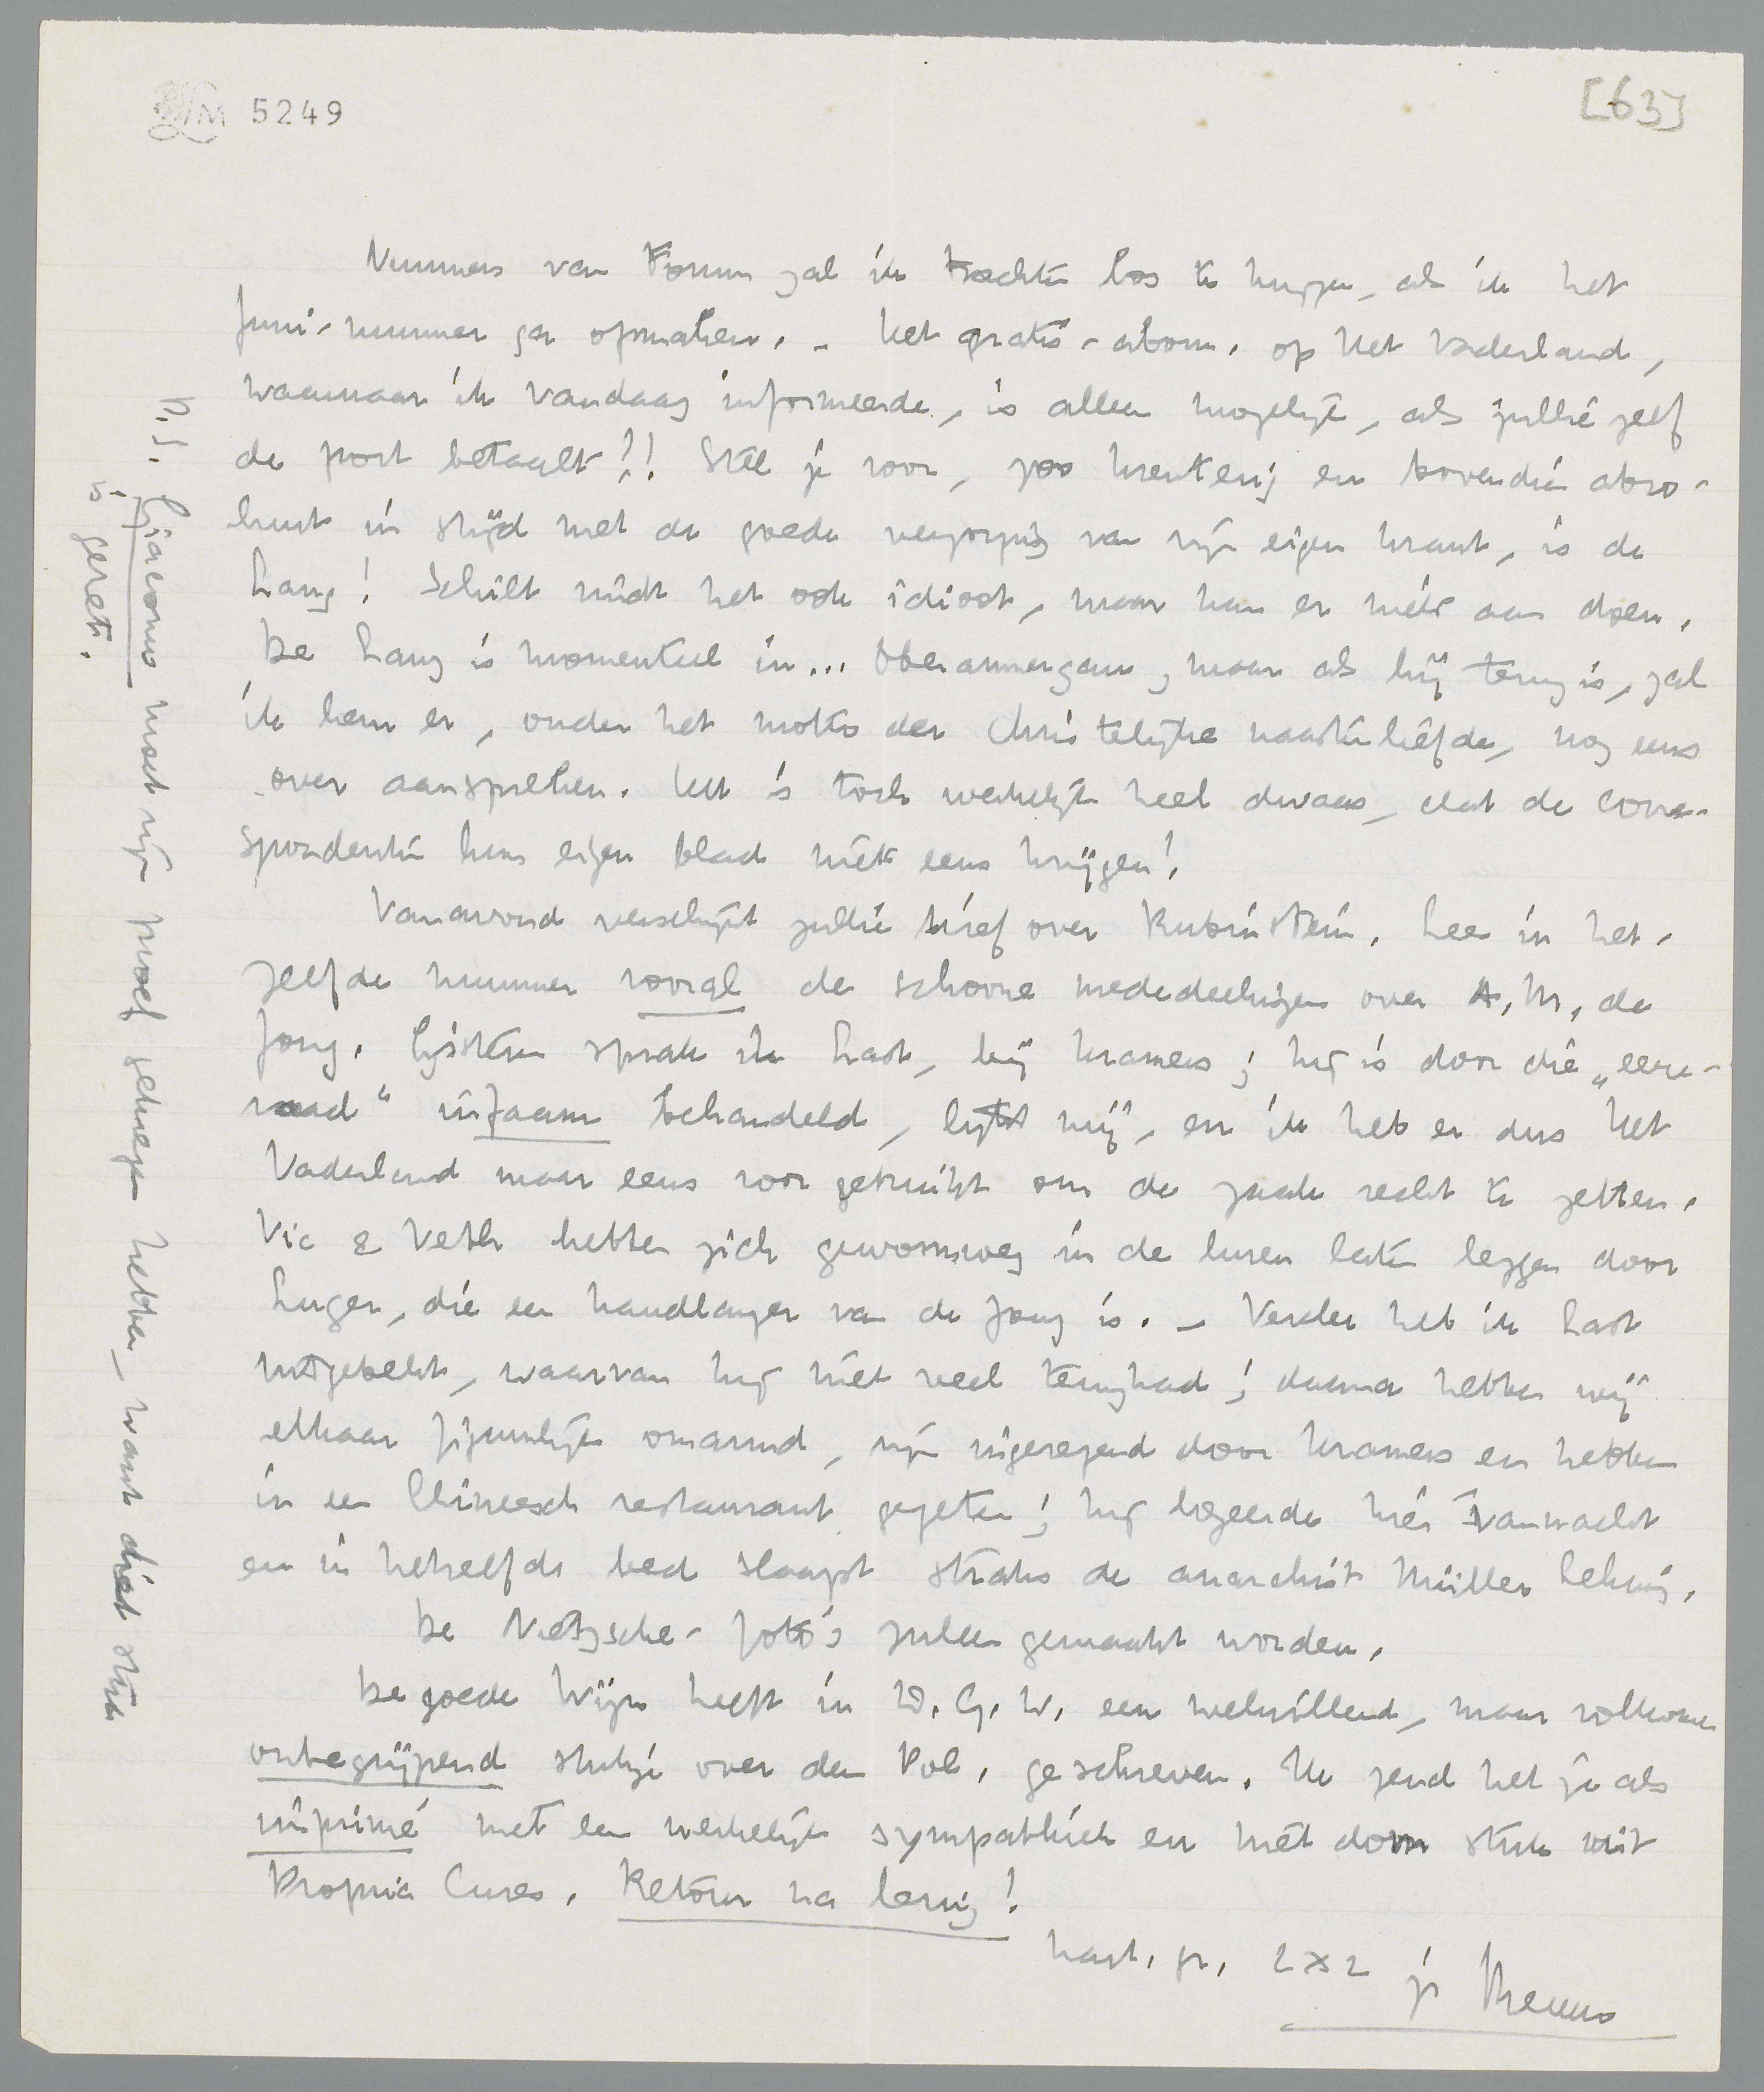 LM 5249
[63]
Nummers van Forum zal ik trachten los te krijgen, als ik het
Juni-nummer ga opmaken. – Het gratis-abonn. op Het Vaderland,
waarnaar ik vandaag informeerde, is alleen mogelijk, als jullie zelf
de port betaalt!! Stel je voor, zoo krenterig en bovendien abso-
luut in strijd met de goede verzorging van zijn eigen krant, is de
Lang! Schilt vindt het ook idioot, maar kan er niets aan doen.
De Lang is momenteel in... Oberammergau; maar als hij terug is, zal
ik hem er, onder het motto der Christelijke naastenliefde, nog eens
over aanspreken. Het is toch werkelijk heel dwaas, dat de corre-
spondenten hun eigen blad niet eens krijgen!
Vanavond verschijnt jullie brief over Rubinstein. Lees in het-
zelfde nummer vooral de schoone mededeelingen over A.M. de
Jong. Gisteren sprak ik Last, bij Kramers; hij is door die „eere-
raad" infaam behandeld, lijkt mij, en ik heb er dus Het
Vaderland maar eens voor gebruikt om de zaak recht te zetten.
Vic & Veth hebben zich gewoonweg in de luren laten leggen door
Luger, die een handlanger van de Jong is. – Verder heb ik Last
uitgebekt, waarvan hij niet veel terughad; daarna hebben wij
elkaar figuurlijk omarmd, zijn ingezegend door Kramers en hebben
in een Chineesch restaurant gegeten; hij logeerde hier vannacht
en in hetzelfde bed slaapt straks de anarchist Müller Lehning.
De Nietzsche-foto's zullen gemaakt worden.
De goede Wijn heeft in D.G.W. een welwillend, maar volkomen
onbegrijpend stukje over den Pol. geschreven. Ik zend het je als
imprimé met een werkelijk sympathiek en niet dom stuk uit
Propria Cures. Retour na lezing!
hart. gr. 2 x 2 je Menno
P.S. Giacomo moet zijn proef gekregen hebben, want dat stuk
is gezet.